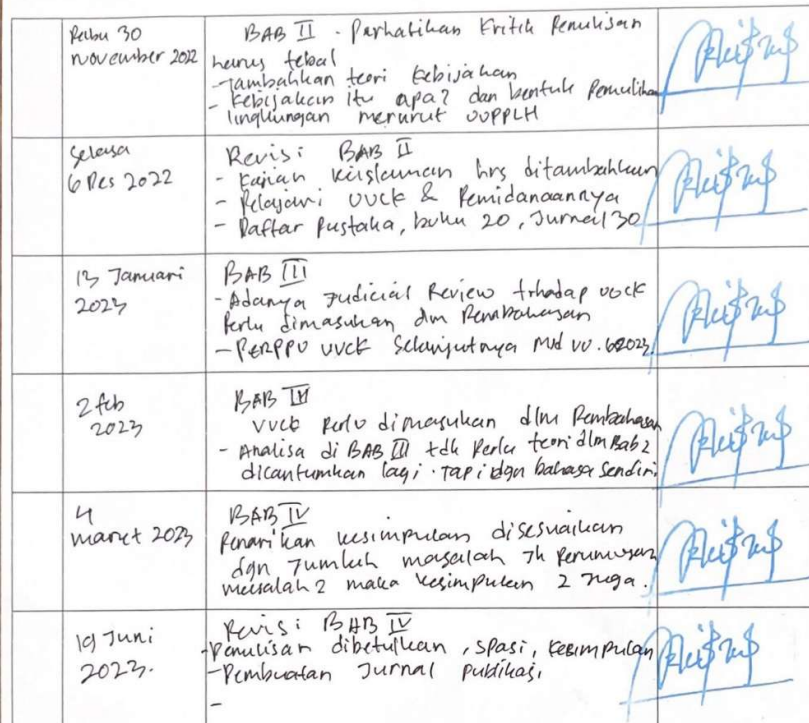 Rabu 30
november 2022
BAB II - Perhatikan Kritik Penulisan
harus tebal
- Tambahkan teori Kebijakan
- Kebijakan itu apa? dan bentuk Pemulihan
lingkungan menurut UUPPLH
Selasa
6 Des 2022
Revisi BAB II
- Kajian keislaman hrs ditambahkan
- Pelajari UUCK & Pemidanaannya
- Daftar Pustaka, buku 20, Jurnal 30
13 Januari
2023
BAB III
- Adanya Judicial Review trhadap UUCK
Perlu dimasukan dlm Pembahasan
- PERPPU UUCK Selanjutnya Mjd UU. 6 2023
2 feb
2023
BAB III
UUCK Perlu dimasukan dlm Pembahasan
- Analisa di BAB III tdk Perlu teori dlm Bab 2
dicantumkan lagi. Tapi dgn bahasa sendiri
4
maret 2023
BAB IV
Penarikan kesimpulan disesuaikan
dgn Jumlah masalah Jk Perumusan
masalah 2 maka kesimpulan 2 juga.
19 Juni
2023.
Revisi BAB IV
- Penulisan dibetulkan, spasi, kesimpulan
- Pembuatan Jurnal publikasi
-